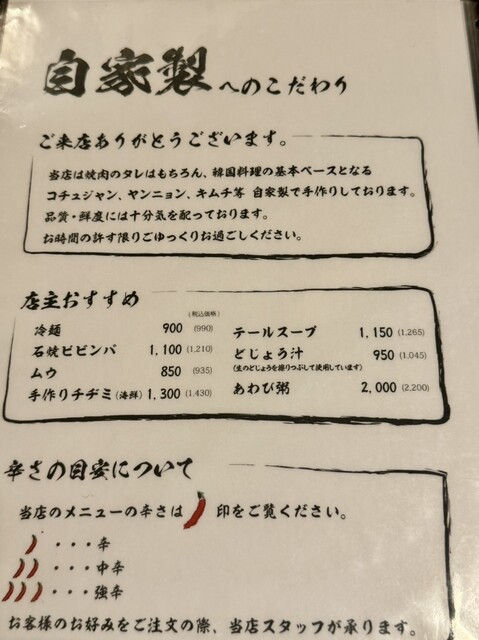 自家製へのこだわり
ご来店ありがとうございます。
当店は焼肉のタレはもちろん、韓国料理の基本ベースとなる
コチュジャン、ヤンニョン、キムチ等 自家製で手作りしております。
品質・鮮度には十分気を配っております。
お時間の許す限りごゆっくりお過ごしください。
店主おすすめ
(税込価格)
冷麺 900 (990)
石焼ビビンバ 1,100 (1,210)
ムウ 850 (935)
手作りチヂミ(海鮮) 1,300 (1,430)
テールスープ 1,150 (1,265)
どじょう汁 950 (1,045)
(生のどじょうを擦りつぶして使用しています)
あわび粥 2,000 (2,200)
辛さの目安について
当店のメニューの辛さは 印をご覧ください。
・・・辛
・・・中辛
・・・強辛
お客様のお好みをご注文の際、当店スタッフが承ります。